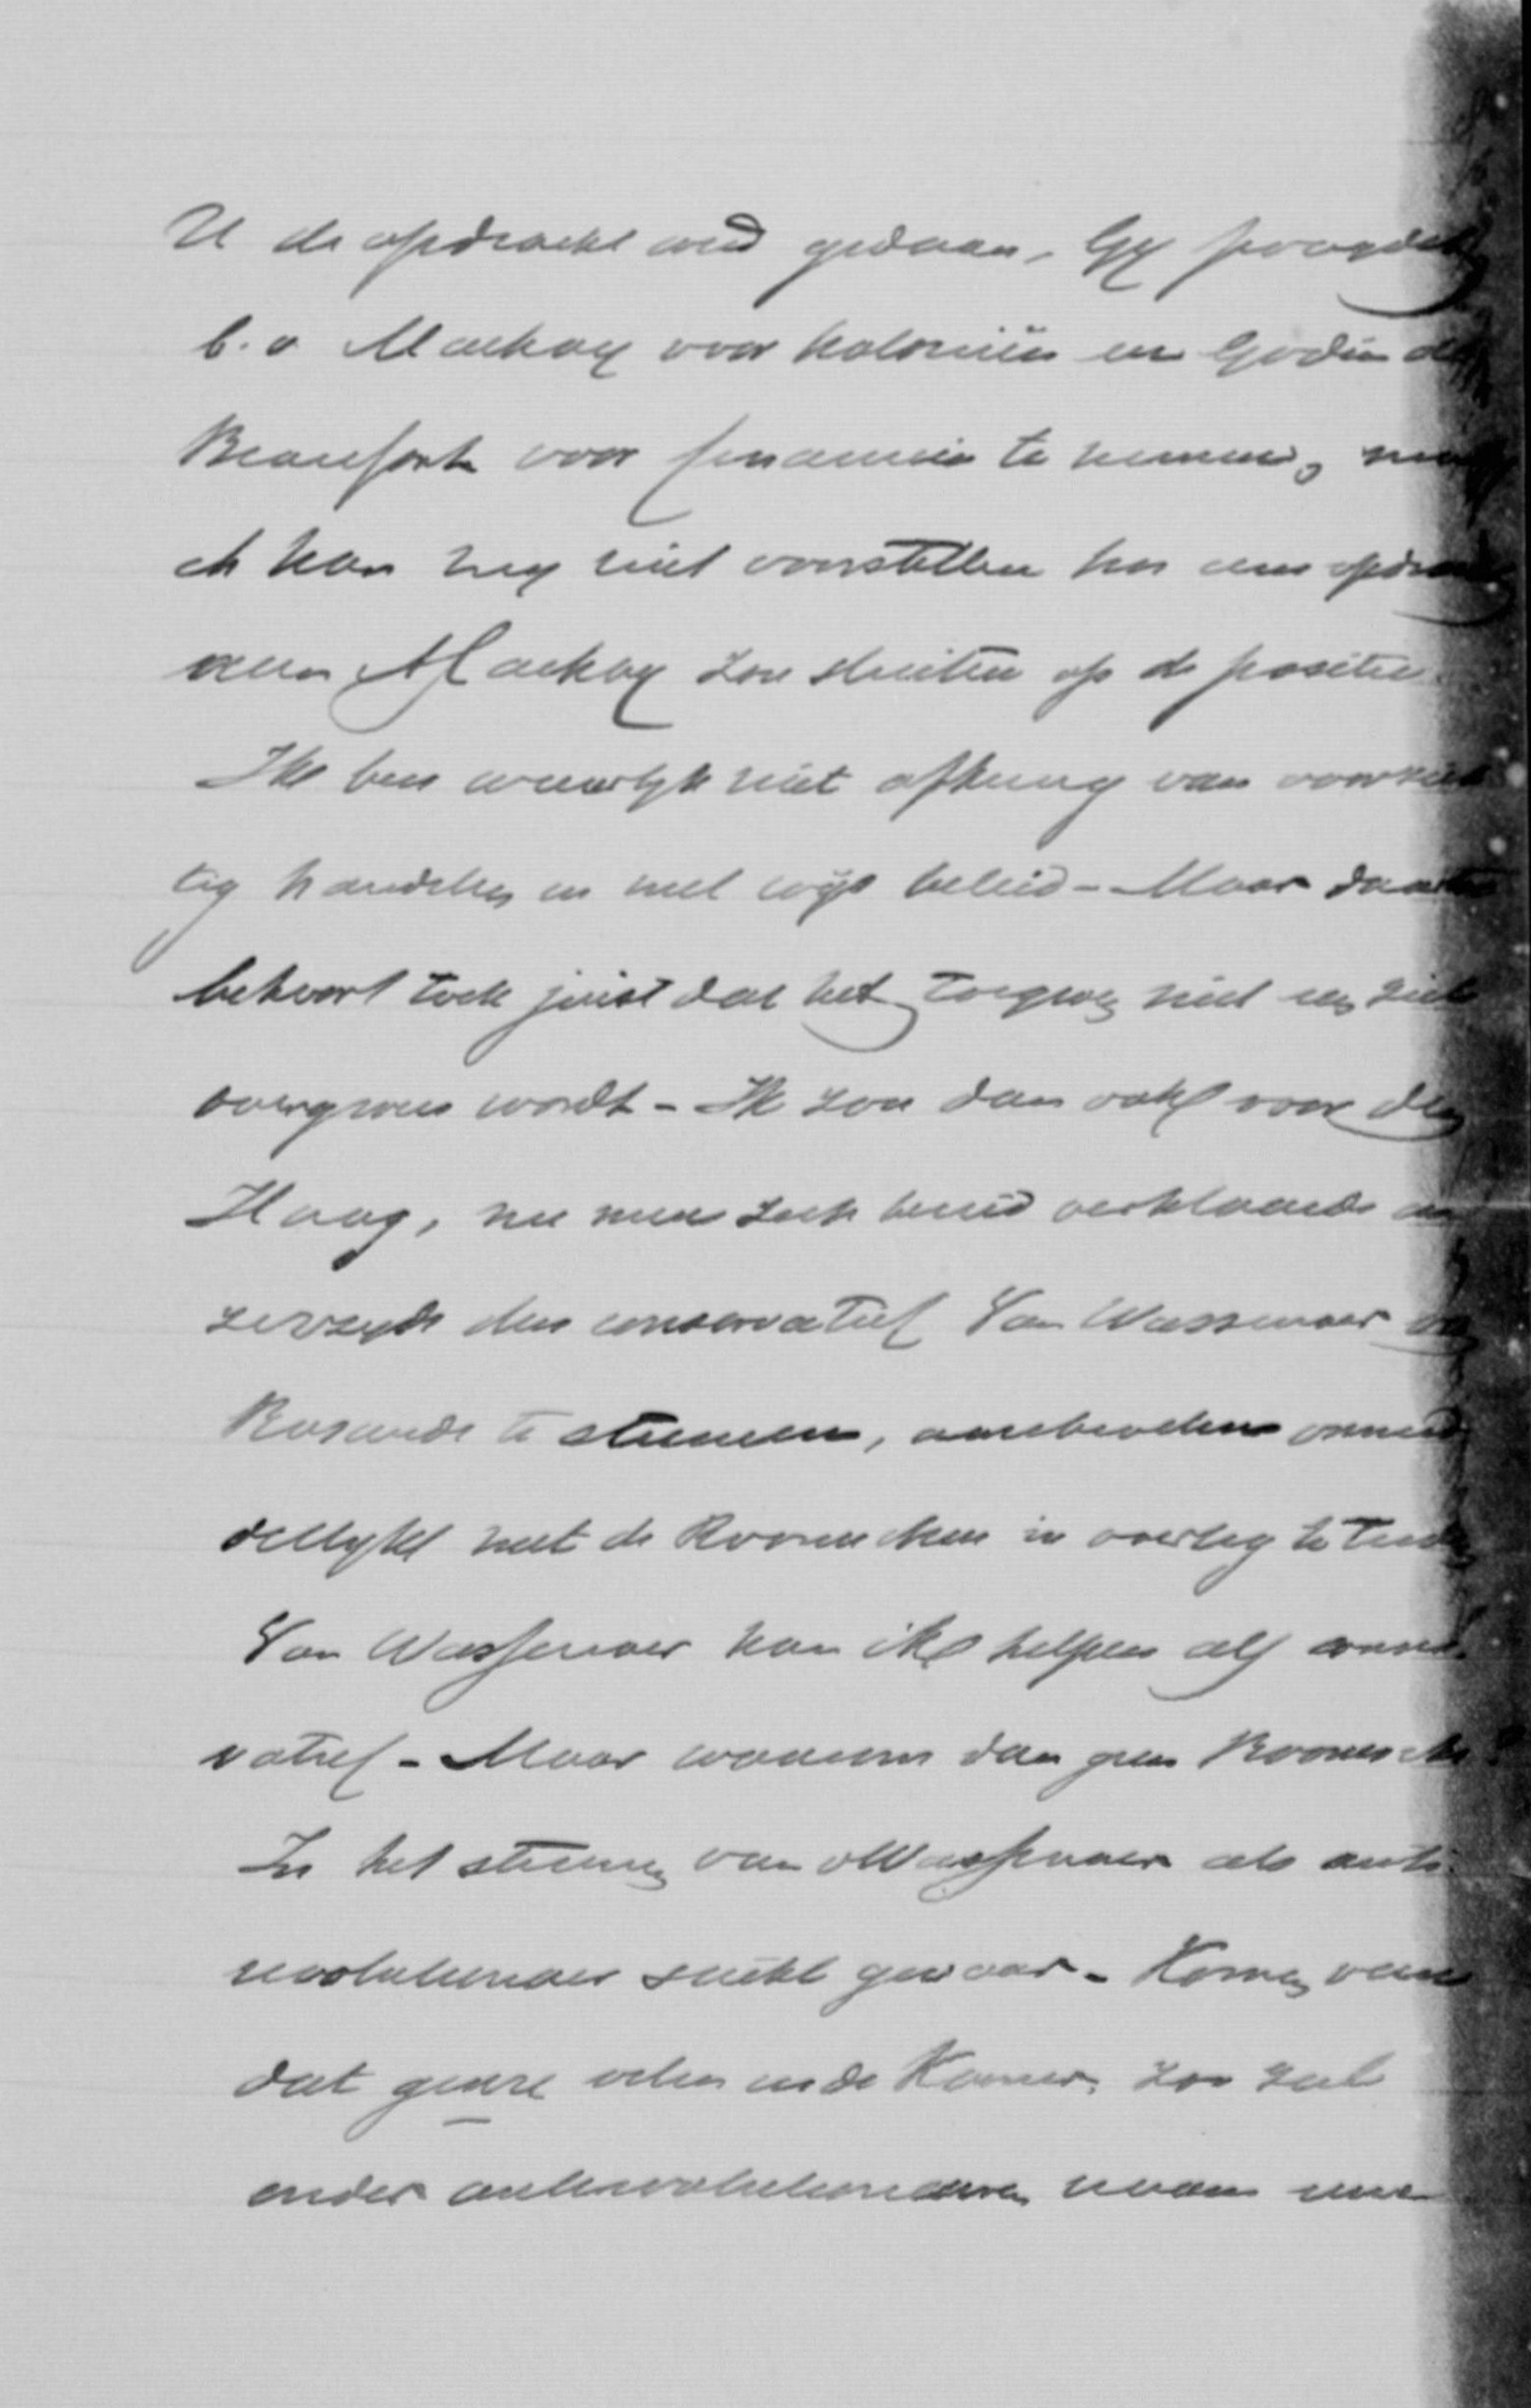 U de opdracht werd gedaan, Gy poogdet
b.v. Mackay voor koloniën en Godin de
Beaufort voor financien te nemen, maar
ik kan my niet voorstellen hoe een opdracht
aan Mackay zou sluiten op de positie.
Ik ben waarlyk niet afkeerig van voorzich
tig handelen en met wys beleid - Maar daartoe
behoort toch juist dat het, toegeven niet een ziel
overgeven wordt - Ik zou dan ook voor den
Haag, nu men zich bereid verklaarde
zerzyds den conservatief Van Wassenaer van
Rosande te steunen, aanbevelen onmid
dellykl met de Roomschen in overleg te treden
Van Wassenaer kan ik helpen als conser
vatief - Maar waarom dan geen Roomsche?
In het steunen van v Wassenaer als anti
revolutionair steekt gevaar - Komen van
dat genre velen in de Kamer, zoo zal
onder antirevolutionairen naam een